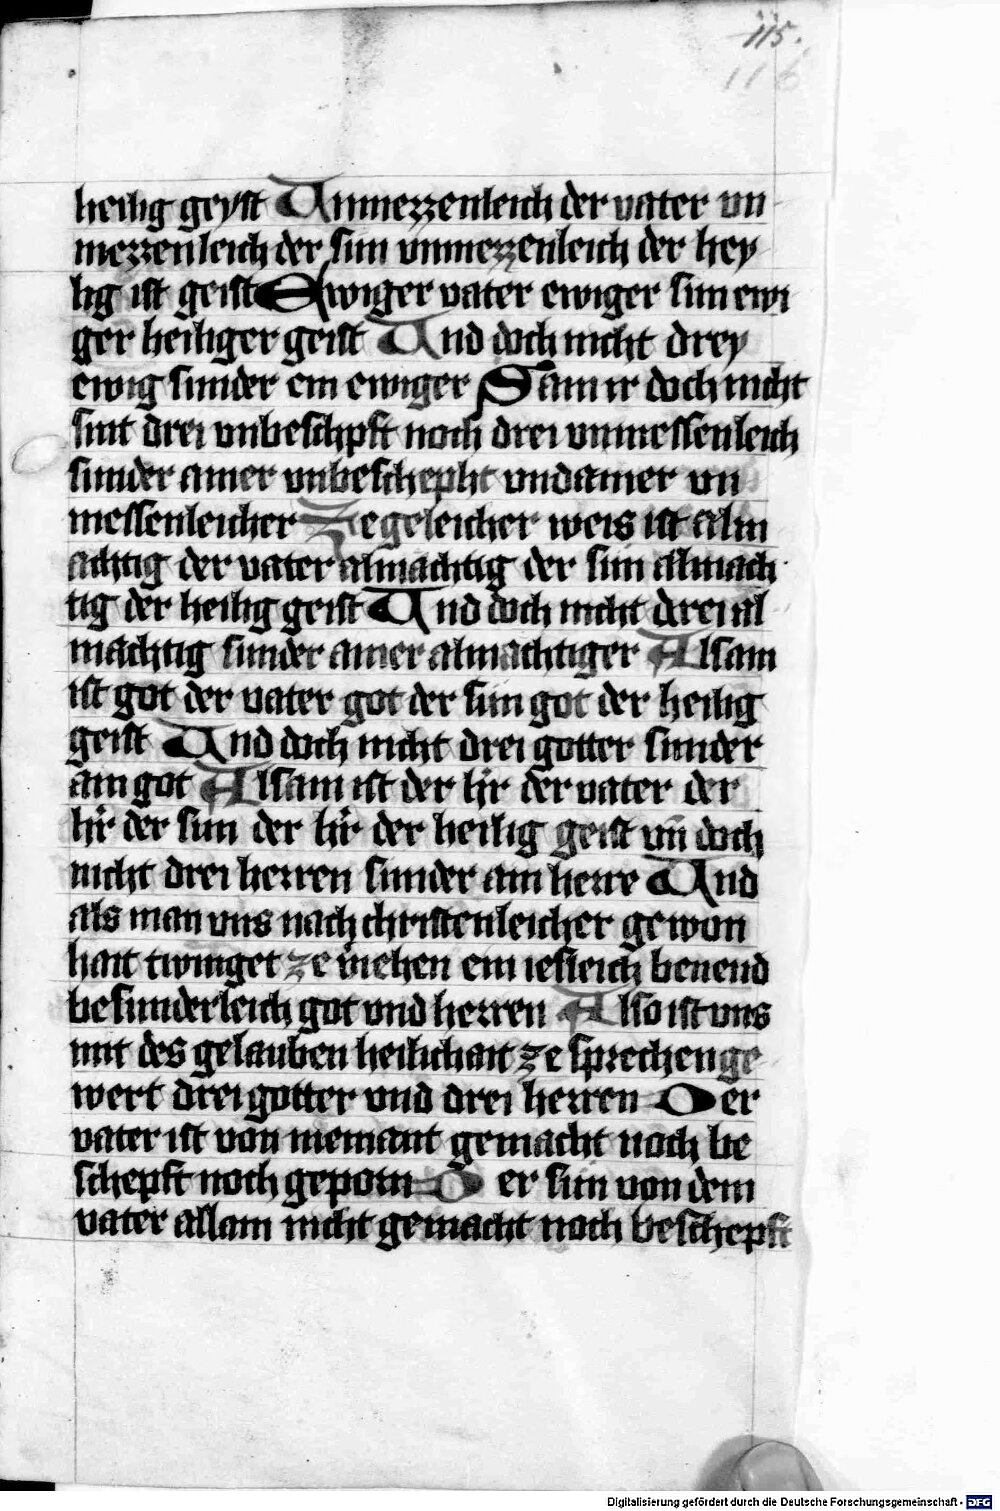 115.
116
heilig geyst Vnmezzenleich der vater vn
mezzenleich der sun vnmezzenleich der hey
lig ist geist Ewiger vater ewiger sun ewi
ger heiliger geist Vnd doch nicht drey
ewig sunder ein ewiger Sam ir doch nicht
sint drei vnbeschpft noch drei vnmessenleich
sunder ainer vnbeschepht vnd ainer vn
messenleicher Ze geleicher weis ist alm
achtig der vater almachtig der sun almach
tig der heilig geist Vnd doch nicht drei al
machtig sunder ainer almachtiger Alsam
ist got der vater got der sun got der heilig
geist Vnd doch nicht drei gotter sunder
ain got Alsam ist der hr der vater der
hr der sun der hr der heilig geist vn̄ doch
nicht drei herren sunder ain herre Vnd
als man vns nach christenleicher gewon
hait twinget ze iehen ein iesleich benend
besunderleich got vnd herren Also ist vns
mit des gelauben heilichait ze sprechen ge
wert drei gotter vnd drei herren Der
vater ist von niemant gemacht noch be
schepft noch geporn Der sun von dem
vater allain nicht gemacht noch beschepft
Digitalisierung gefördert durch die Deutsche Forschungsgemeinschaft - DFG